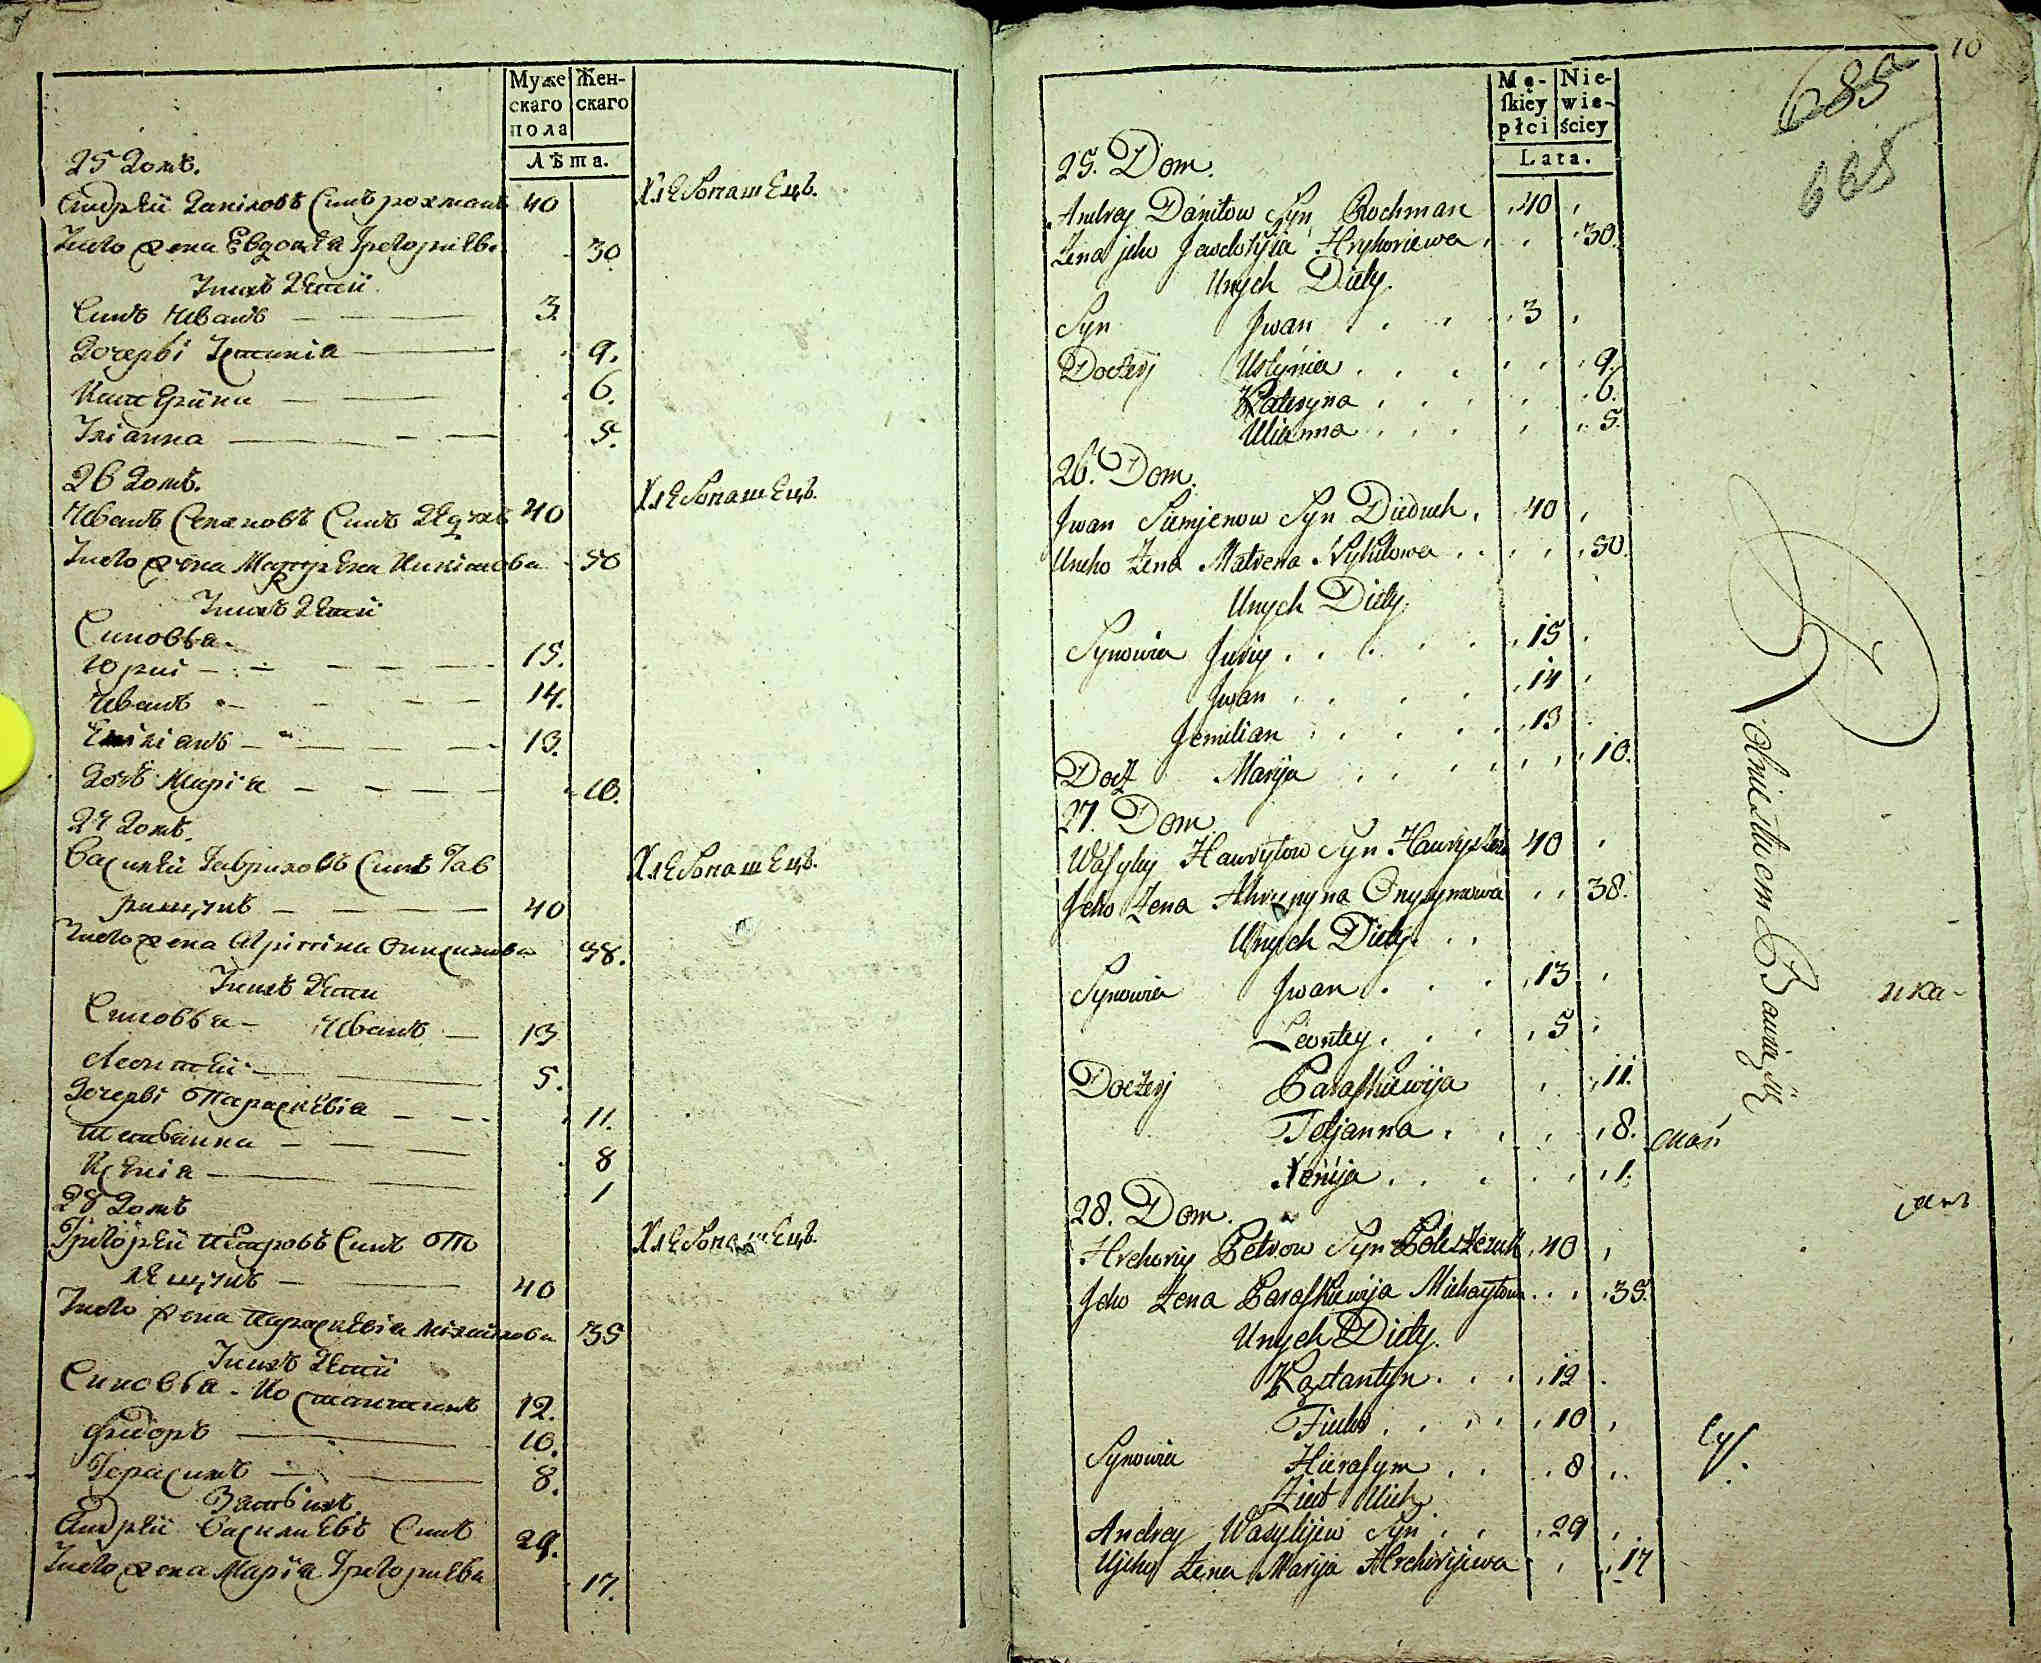 Муже
скаго
пола
Жен-
скаго
Лѣта.
25 домъ.
Андрѣй Даніловъ Синъ рохманъ 40
Унего жена Евдокѣа Григориева 30
Унихъ Дѣтй
Синъ Иванъ 3.
Дочерѣ Устинія 9.
Катерина 6.
Уліанна 5.
26 домъ.
Иванъ Семяновъ Синъ Дѣдухъ 40
Унего жена Матрѣна Никитова 50
Унихъ Дѣтй
Синовья
Юрій 15.
Иванъ 14.
Емиліанъ 13.
Дочъ Марія 10.
27 домъ.
Василѣй Гавриловъ Синъ Гав
рищукъ 40
Унего жена Агрипина Онисимова 38.
Унихъ Дѣти
Синовья Иванъ 13
Леонтѣй 5.
Дочерѣ Параскѣвія 11.
Татіанна 8
Ксенія 1
28 домъ
Григорѣй Петровъ Синъ По
лещукъ 40
Унего жена Параскѣвія Михайлова 35
Унихъ Дѣтй
Синовья Костантинъ 12.
Фидоръ 10.
Герасимъ 8.
Зять ихъ
Андрѣй Василиевъ Синъ 29.
Унего жена Марія Григориева 17.
Хлебопашецъ.
Хлебопашецъ.
Хлебопашецъ.
Хлебопашецъ.
10
685
685
Mę-
skiey
płci
Nie-
wie-
ściey
Lata.
25. Dom.
Andrey Daniłow Syn Rochman 40
Żena jeho Jawdotyja Hryhoriewa 30.
Unych Dity.
Syn Jwan 3
Doczery Ustynia 9.
Kateryna 6.
Ulianna 5.
26. Dom.
Jwan Siemjenow Syn Diduch 40
Uneho Żena Matrena Nykitowa 50.
Unych Dity.
Synowia Juriy 15
Jwan 14
Jemilian 13
Docz Marija 10.
27. Dom
Wasyliy Hawryłow Syn Hawryszczuk 40
Jeho Żena Ahrypyna Onysymowa 38.
Unych Dity.
Synowia Jwan 13
Leontey 5
Doczery Paraskiewija 11.
Tetjanna 8.
Xenija 1.
28. Dom.
Hrehoriy Petrow Syn Poleszczuk 40
Jeho Żena Paraskiewija Michayłowa 35.
Unych Dity.
Kostantyn 12
Fiedor 10
Synowia Hierasym 8
Ziat Uich
Andrey Wasylijew Syn 29
Ujeho Żena Marija Hrehorijewa 17
Rolnictwem Bawią się
ика-